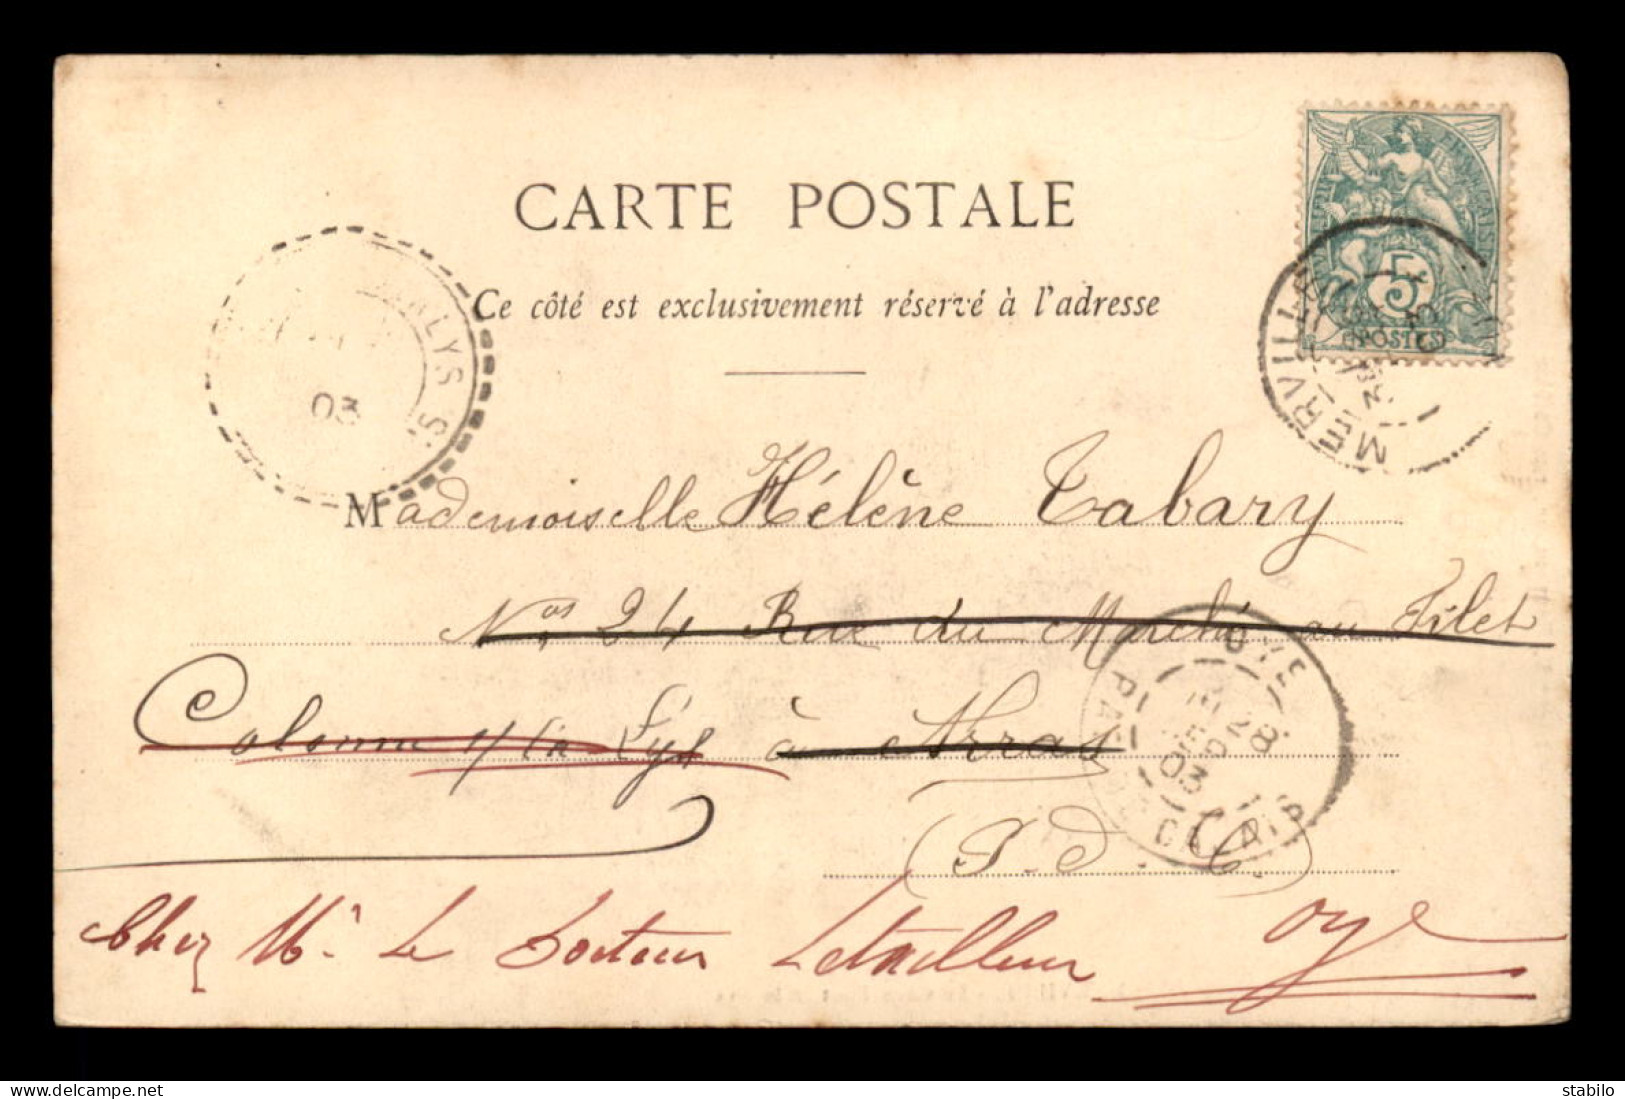 CARTE POSTALE
Ce côté est exclusivement réservé à l'adresse
RÉPUBLIQUE FRANÇAISE
5
POSTES
MERVILLE
LYS S.
03
Mademoiselle Hélène Tabary
Nos 24 Rue du Marché au Filet
Calonne s/ la Lys à Arras
(P. d. C.)
OYE
PAS DE CALAIS
03
Chez Mr Le Docteur Letailleur Oye
stabilo